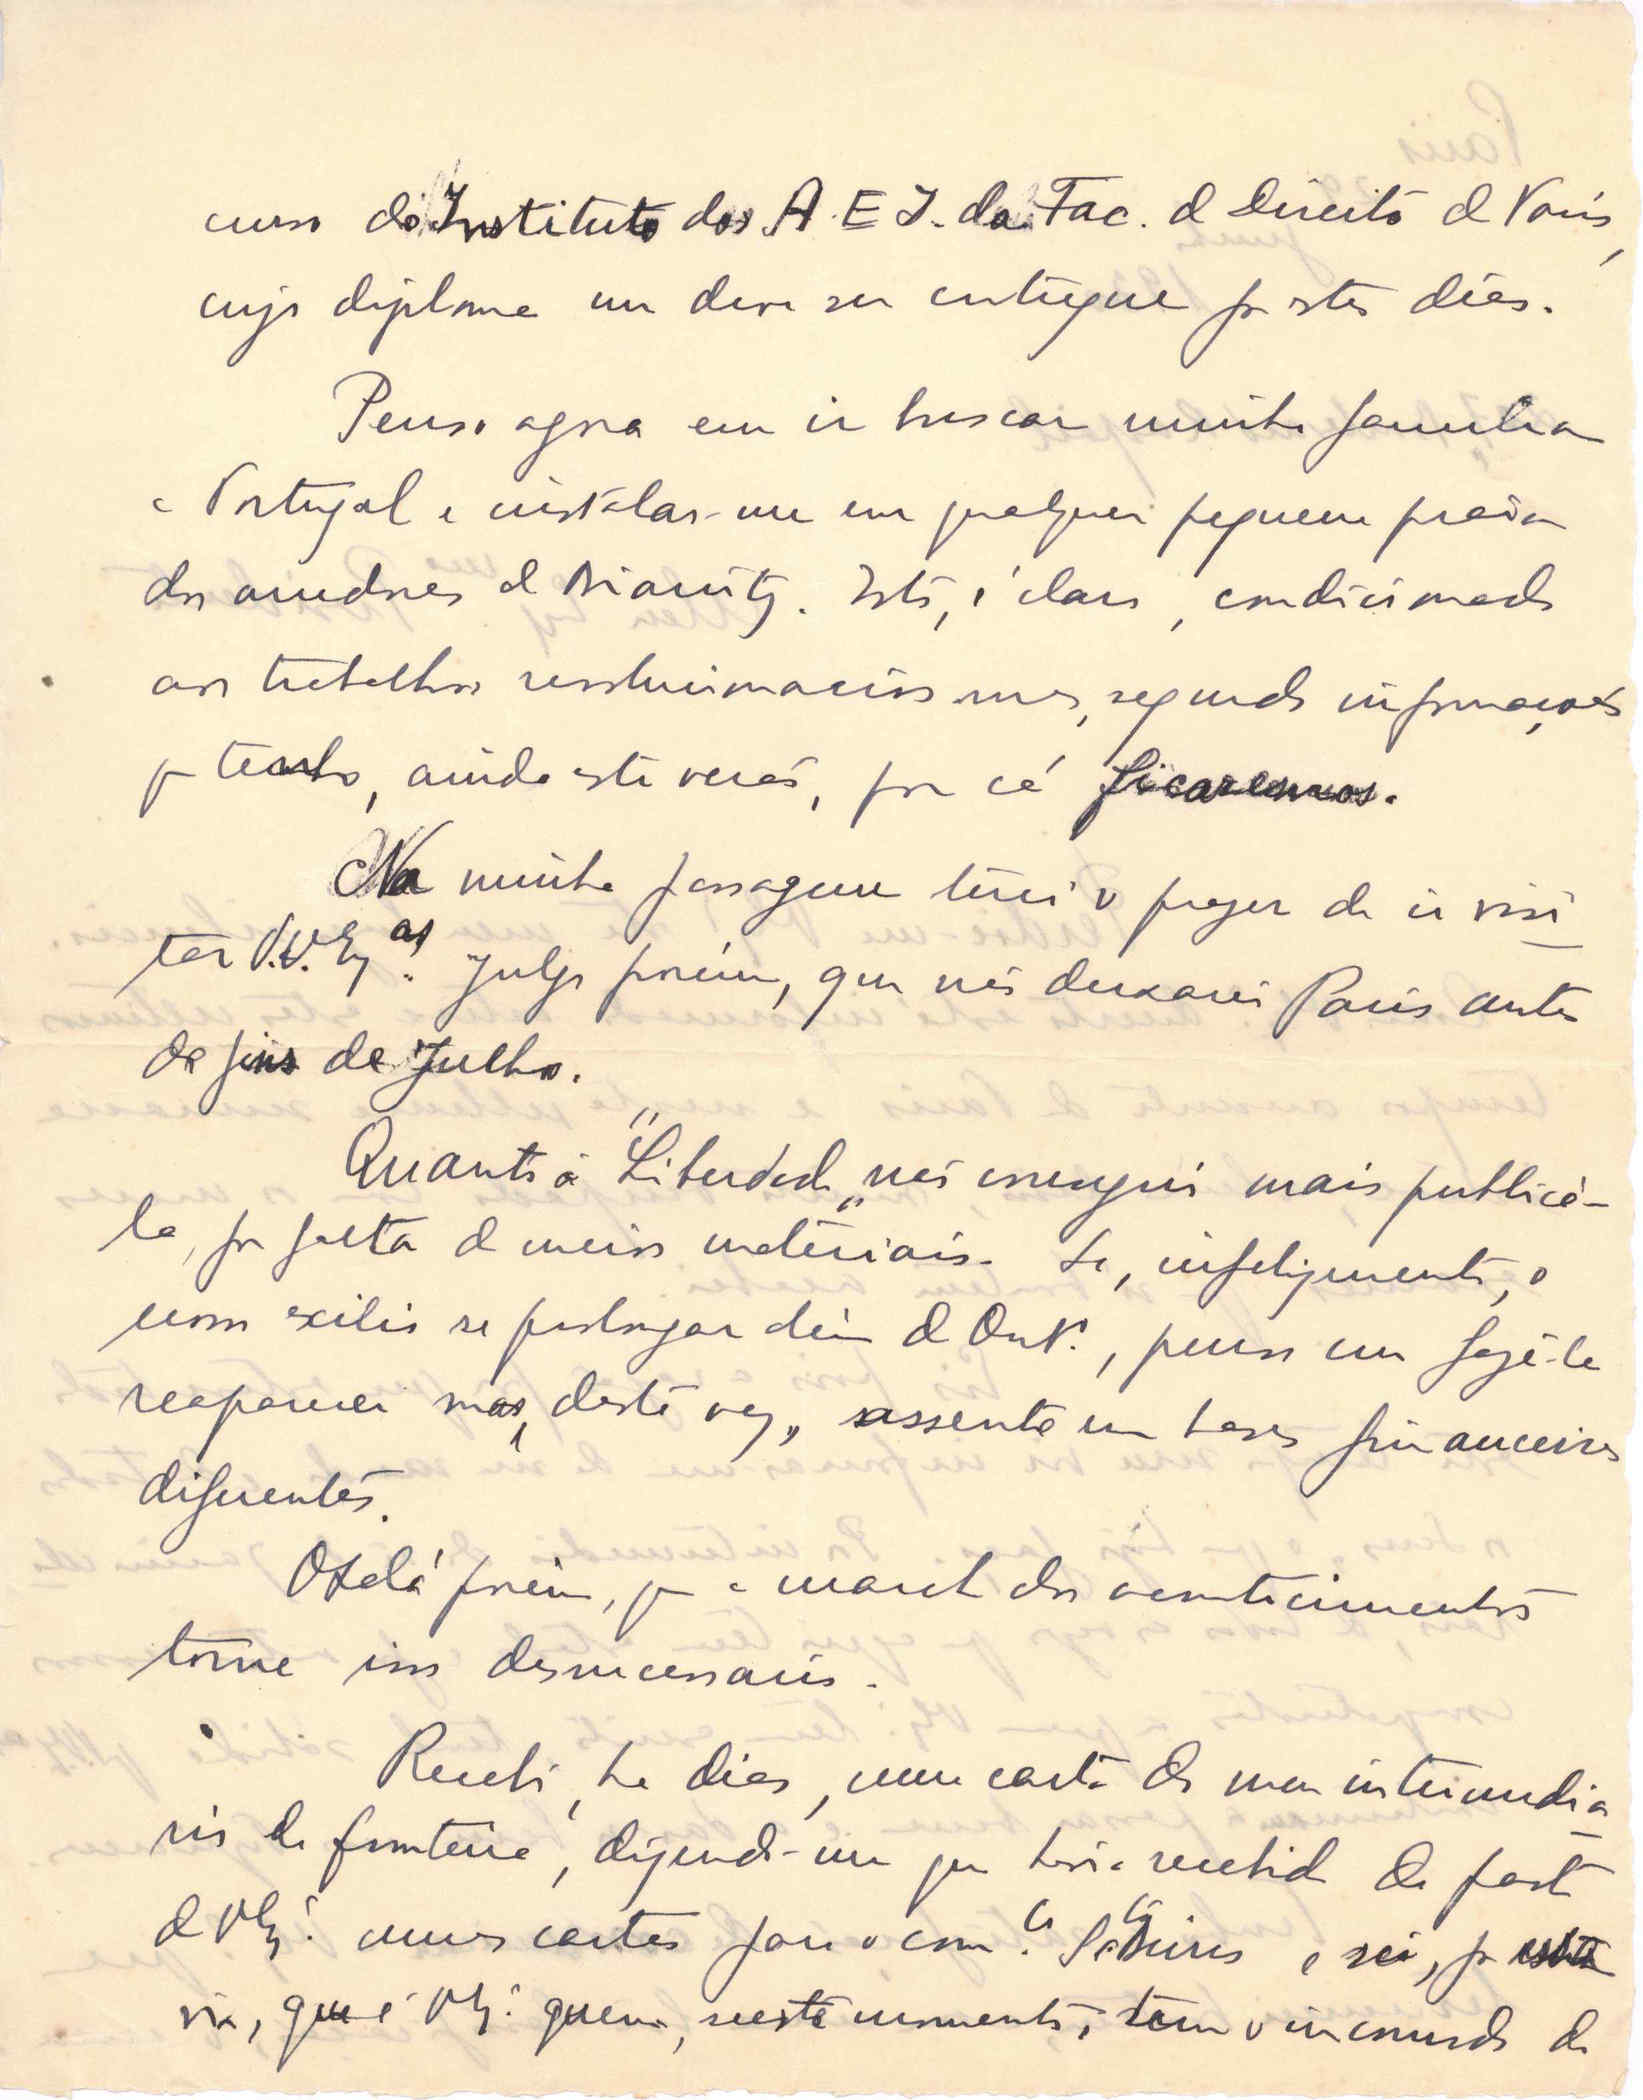 curso do Instituto dos A. E I. da Fac. de Direito de Paris,
cujo diploma me deve ser entregue por estes dias.
Penso agora em ir buscar minha familia
a Portugal e instalar-me em qualquer pequena praia
dos arredores de Biarritz. Isto, é claro, condicionado
aos trabalhos revolucionarios mas, segundo informações
q tenho, ainda este verão, por cá ficaremos.
Na minha passagem terei o prazer de ir visi
tar V.V. Ex.as. Julgo porém, que não deixarei Paris antes
de fins de Julho.
Quanto á "Liberdade" não consegui mais publicá-
la, por falta de meios materiais. Se, infelizmente, o
nosso exilio se prolongar além de Out.º, penso em fazê-la
reaparecer mas, desta vez, assente em bases financeiras
diferentes.
Oxalá porém, q a marcha dos acontecimentos
torne isso desnecessario.
Recebi, ha dias, uma carta do meu intermedia
rio da fronteira, dizendo-me que havia recebido da parte
de V. Ex.ª umas cartas para o com.te e sei, por esta
via, que é V. Ex.ª quem, neste momento, tem o incomodo de